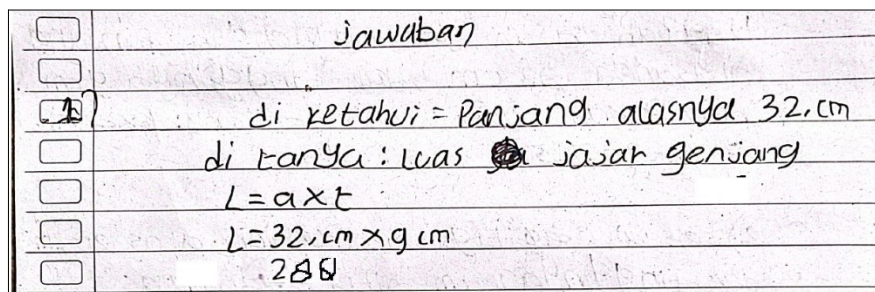 jawaban
1)
di ketahui = Panjang alasnya 32, cm
di tanya : luas jajar genjang
L = a x t
L = 32, cm x 9 cm